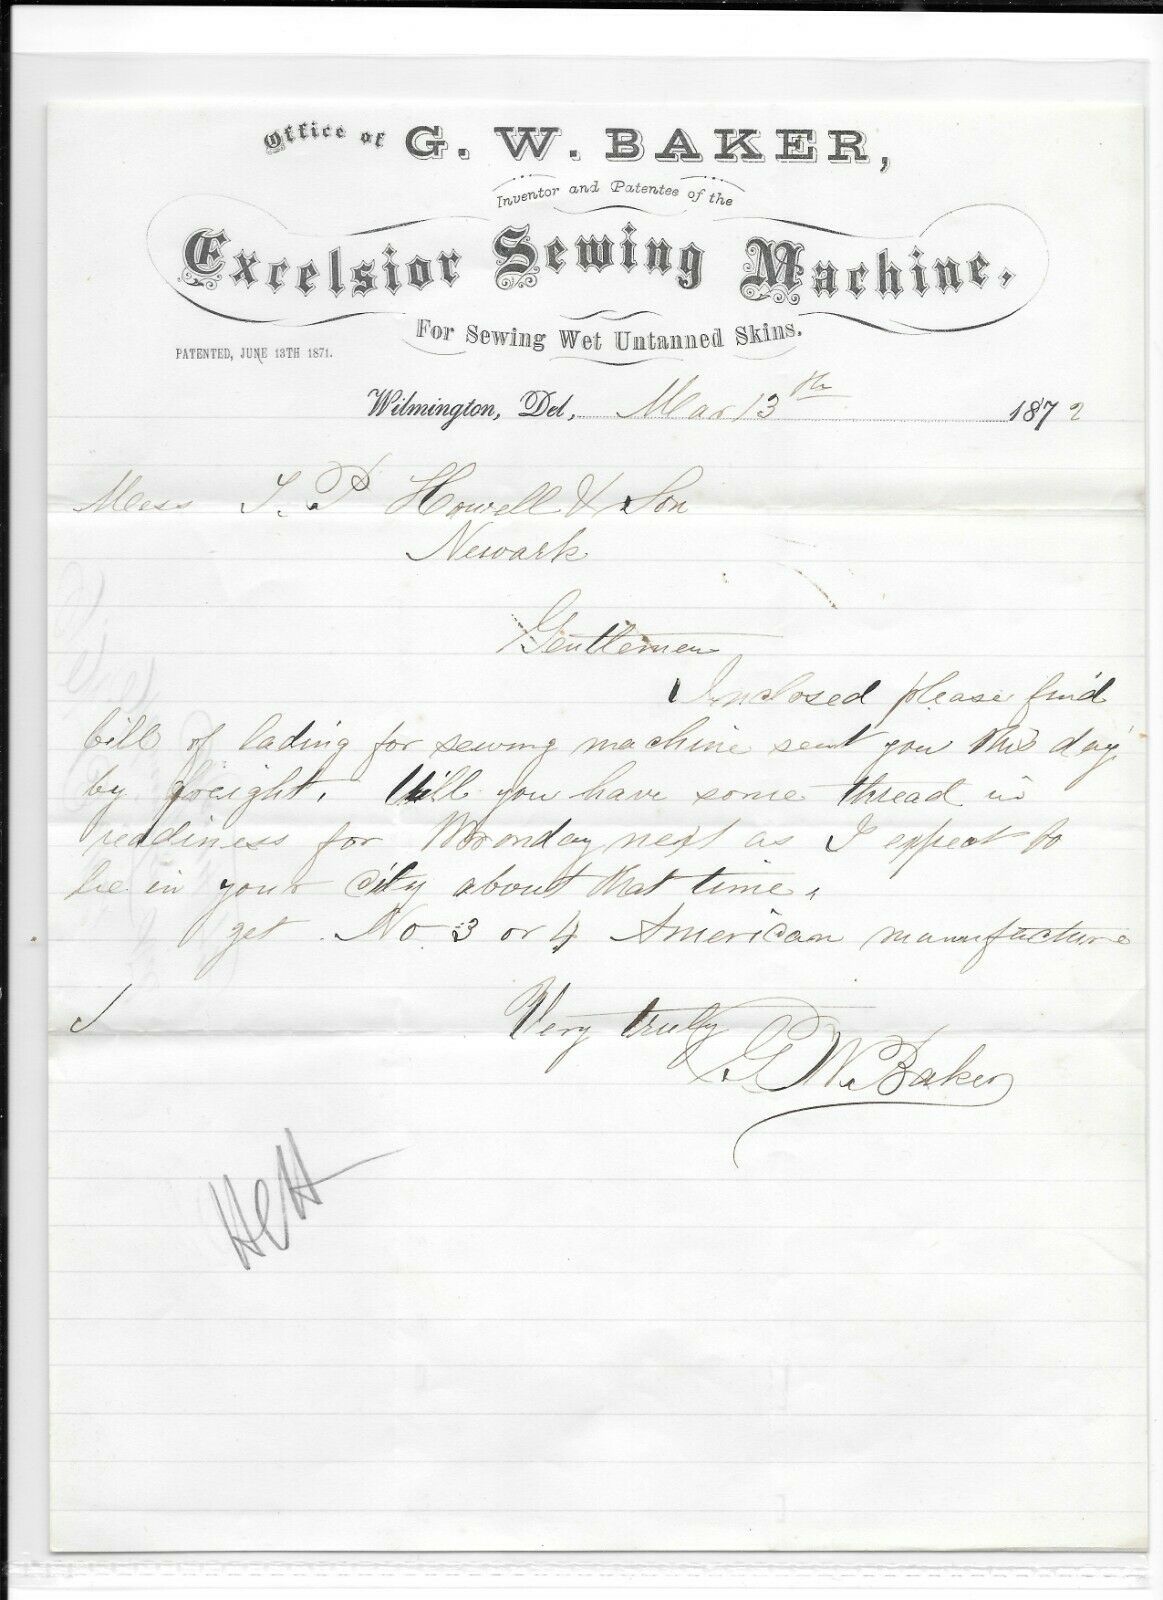 Office of G. W. BAKER,
Inventor and Patentee of the
Excelsior Sewing Machine,
For Sewing Wet Untanned Skins.
PATENTED, JUNE 13TH 1871.
Wilmington, Del, Mar 13th 1872
Mess T. P Howell & Son
Newark
Gentlemen
Inclosed please find
bill of lading for sewing machine sent you this day
by freight. Will you have some thread in
readiness for Monday next as I expect to
be in your city about that time.
get No 3 or 4 American manufacture
Very truly
G W. Baker